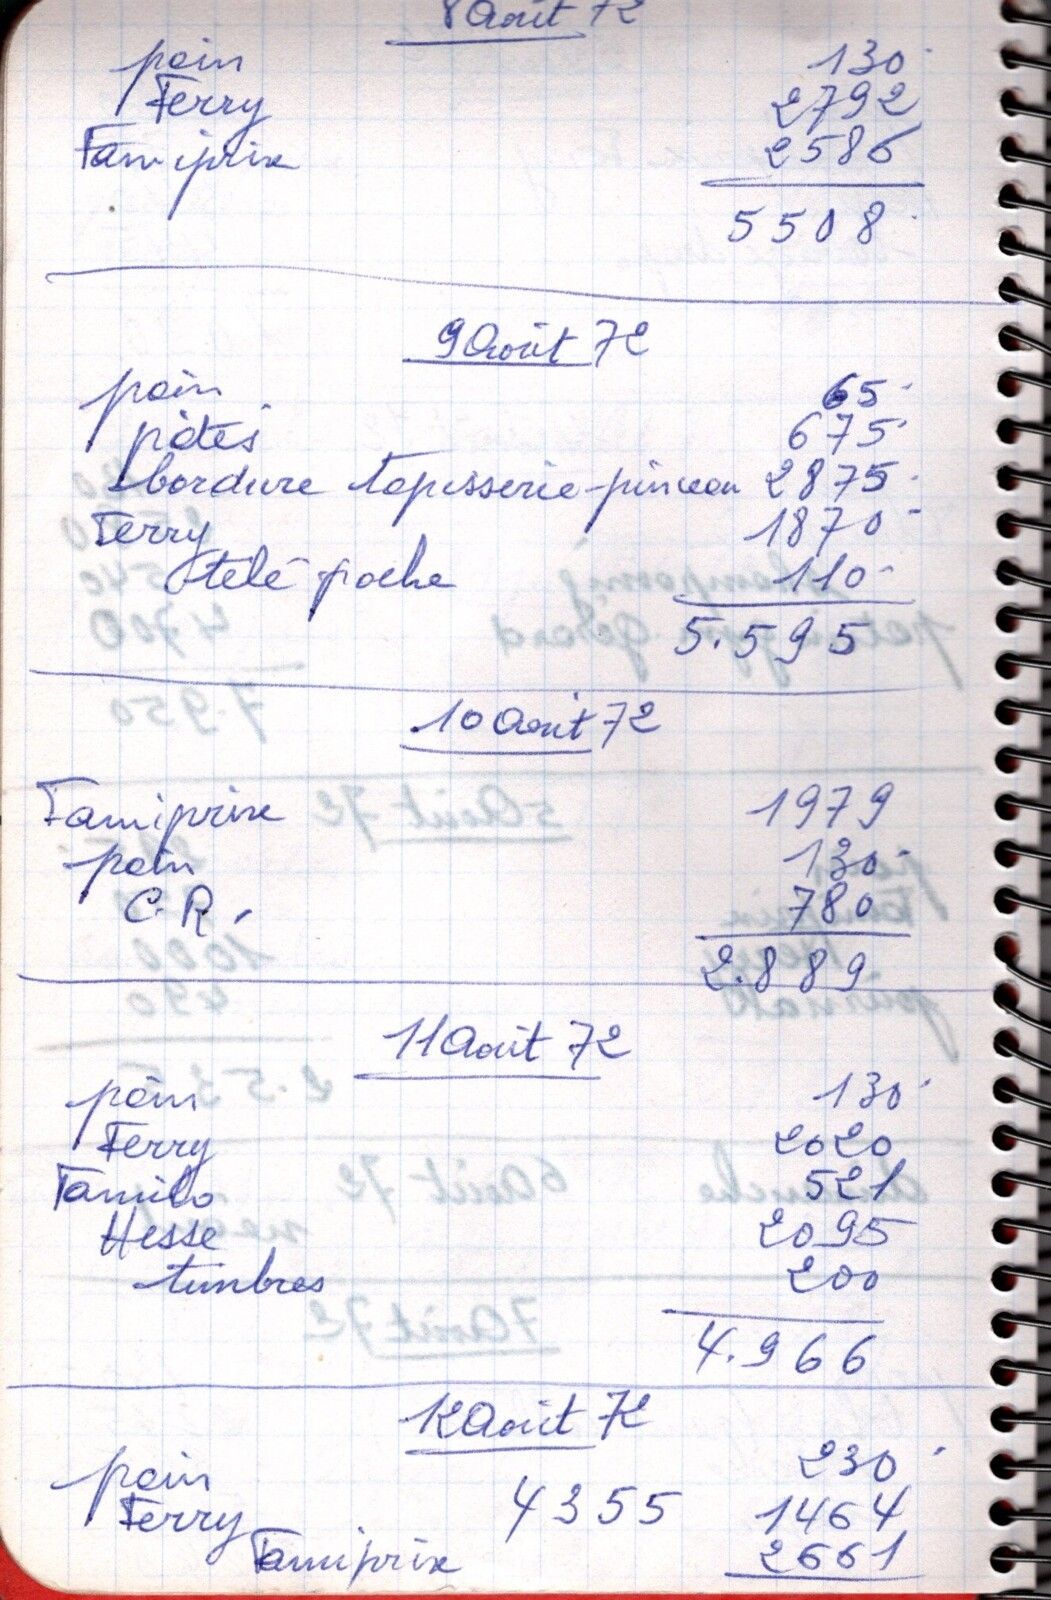 8 Août 72
pain 130
Ferry 2792
Famiprix 2586
5508
9 Août 72
pain 65
pâtes 675
bordure tapisserie-pinceau 2875
Ferry 1870
télé poche 110
5.595
10 Août 72
Famiprix 1979
pain 130
C.R. 780
2.889
11 Août 72
pain 130
Ferry 2020
Familo 521
Hesse 2095
timbres 200
4.966
12 Août 72
pain 230
Ferry 4355 1464
Famiprix 2661